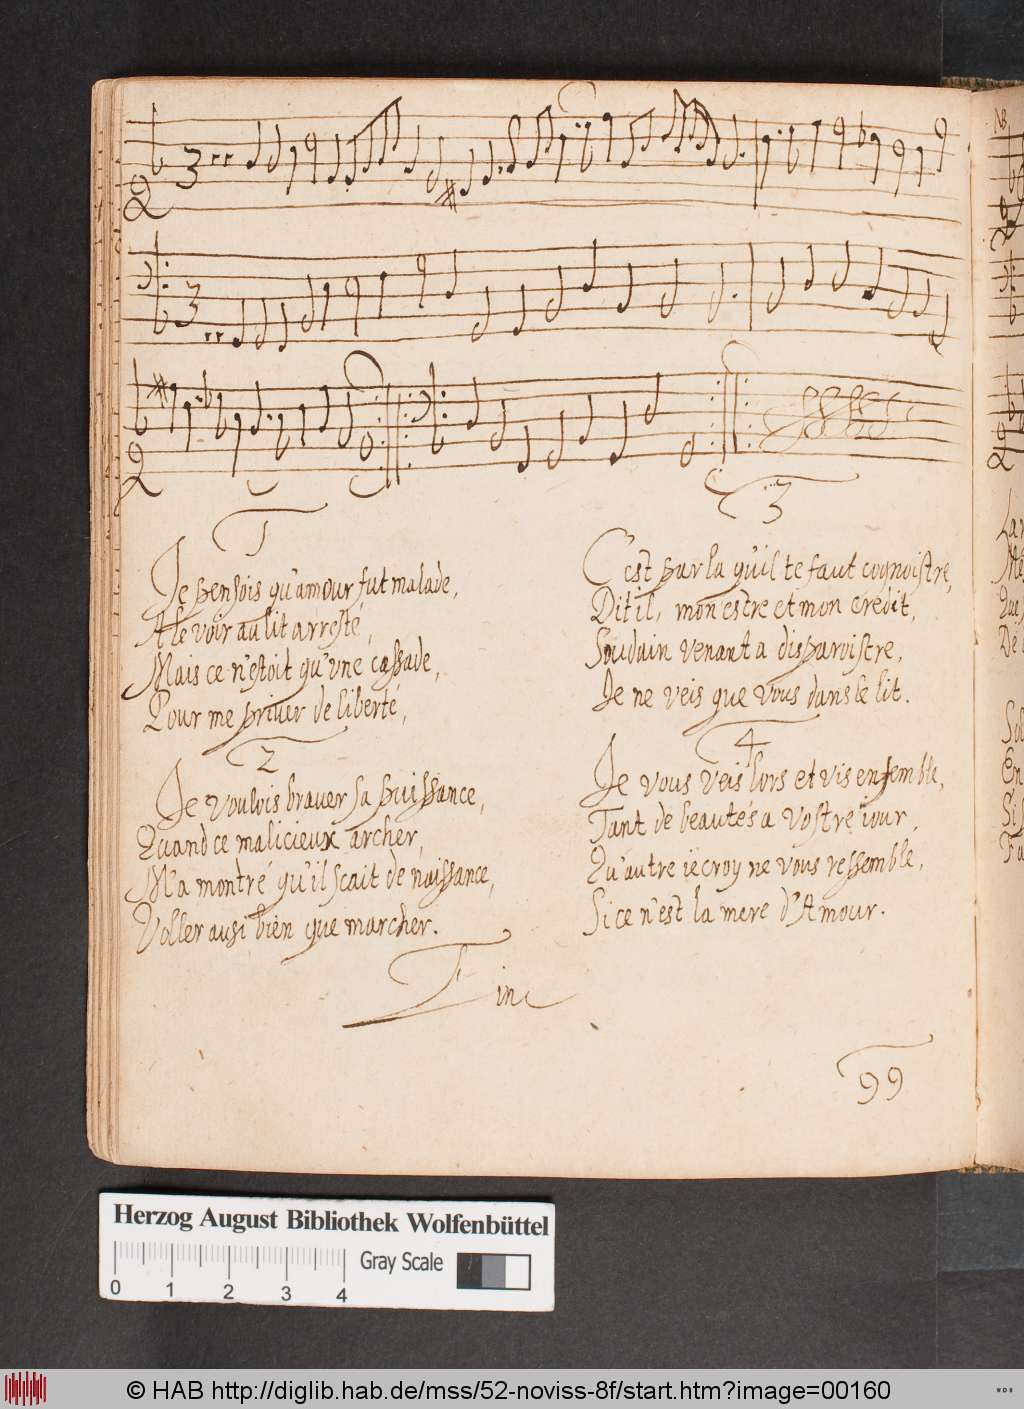 3
3
1
Je pensois qu'amour fut malade,
A le voir au lit arresté,
Mais ce n'estoit qu'vne cassade,
Pour me priuer de liberté,
2
Je voulois brauer sa puissance,
Quand ce malicieux archer,
M'a montré qu'il scait de naissance,
Voller ausi bien que marcher.
3
C'est par la qu'il te faut cognoistre,
Dit il, mon estre et mon credit,
Soudain venant a disparoistre,
Je ne veis que vous dans le lit.
4
Je vous veis lors et vis ensemble,
Tant de beautés a vostre iour,
Qu'autre ie croy ne vous ressemble,
Si ce n'est la mere d'Amour.
Fin
99
Herzog August Bibliothek Wolfenbüttel
Gray Scale
0 1 2 3 4
© HAB http://diglib.hab.de/mss/52-noviss-8f/start.htm?image=00160